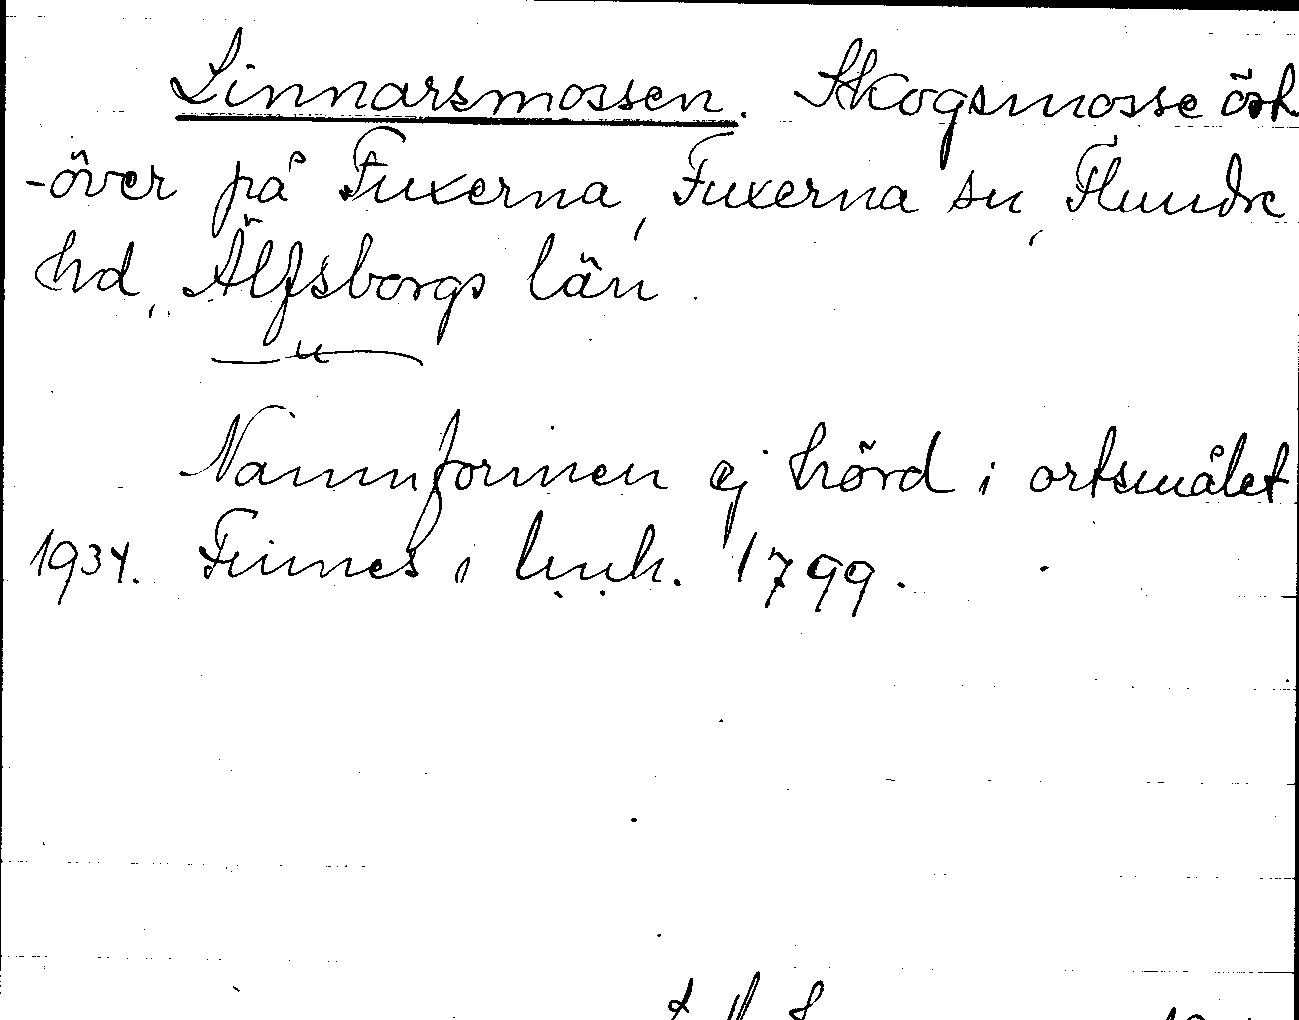 Linnarsmossen. Skogsmosse öst
-över på Fuxerna, Fuxerna sn, Flundre
hd, Älfsborgs län.
Namnformen ej hörd i ortsmålet
1934. Finnes i lmh. 1799.